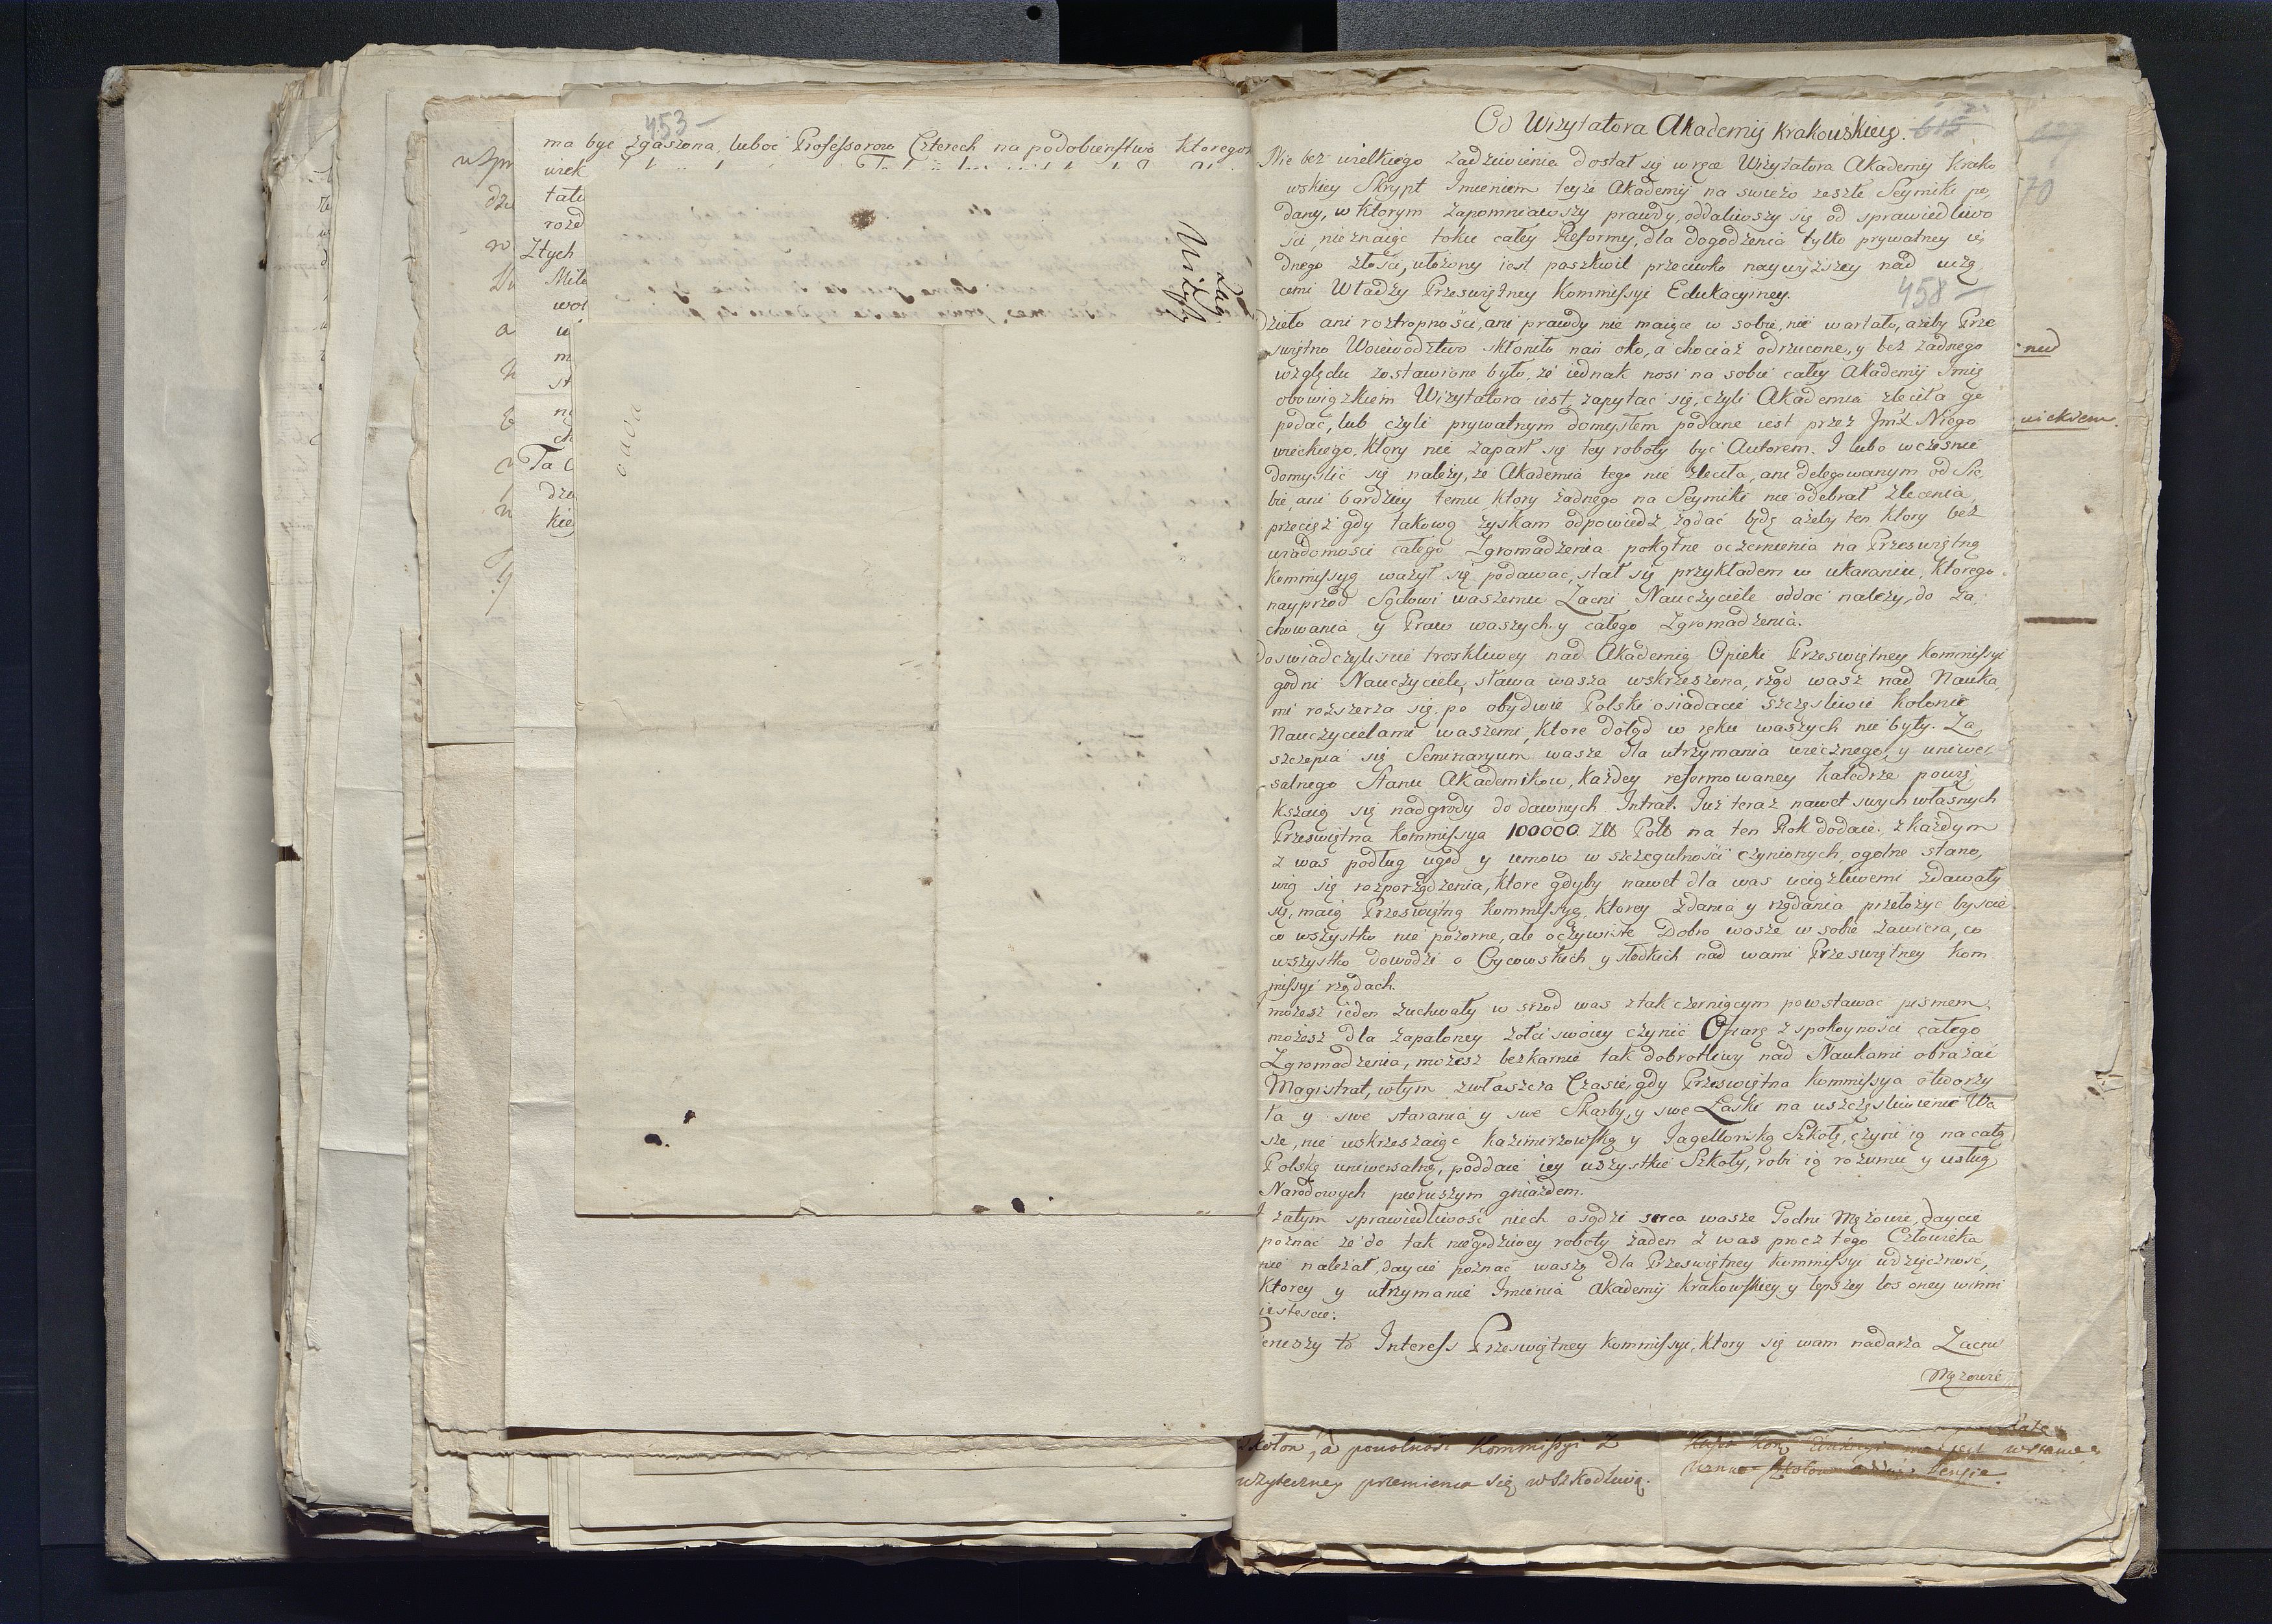 453 —
ma być zgaszona, luboć Professorow Czterech na podobieństwo ktoregoż
wiek
tate
rozd
Złych
Miło
woł
Ta
dze
kię
Od Wizytatora Akademij Krakowskiey.
Nie bez wielkiego zadziwienia dostał się w ręce Wizytatora Akademij krako
wskiey Skrypt Imieniem teyże Akademij na swieżo zeszłe Seymiki po,
dany, w ktorym zapomniawszy prawdy, oddaliwszy się od sprawiedliwo
ści, nieznaiąc toku całey Reformy, dla dogodzenia tylko prywatney ie,
dnego złości, ułożony iest paszkwil przeciwko naywyższey nad uczą,
cemi Władzy Przeświętney Kommissyi Edukacyiney.
458 —
70
Dzieło ani roztropności, ani prawdy nie maiące w sobie, nie wartało, ażeby Prze
świętne Woiewodztwo skłoniło nań oko, a chociaż odrzucone, y bez żadnego
względu zostawione było, że iednak nosi na sobie całey Akademij Imię
obowiązkiem Wizytatora iest, zapytać się, czyli Akademia zleciła ge
podać, lub czyli prywatnym domysłem podane iest przez Jmć X Niego
wieckiego, ktory nie zaparł się tey roboty być Autorem. I lubo wcześnie
domyslić się należy, że Akademia tego nie zleciła, ani delegowanym od Sie
bie, ani bardziey temu, ktory żadnego na Seymiki nie odebrał zlecenia,
przecięż gdy takową zyskam odpowiedź, żądać będę ażeby ten, ktory bez
wiadomości całego Zgromadzenia pokątne oczernienia na Przeświętną
Kommissyą ważył się podawać, stał się przykładem w ukaraniu, ktorego
nayprzod Sądowi waszemu Zacni Nauczyciele oddać należy, do za
chowania y Praw waszych y całego Zgromadzenia.
Doswiadczyliscie troskliwey nad Akademią Opieki Przeświętney Kommissyi
godni Nauczyciele, sława wasza wskrzeszona, rząd wasz nad Nauka,
mi rozszerza się, po obydwie Polski osiadacie szczęsliwie Kolonie
Nauczycielami waszemi, ktore dotąd w ręku waszych nie były. Za,
szczepia się Seminaryum wasze dla utrzymania wiecznego, y uniwer
salnego Stanu Akademikow, każdey reformowaney katedrze powię,
kszaią się nadgrody do dawnych Intrat. Już teraz nawet swych własnych
Przeświętna Kommissya 100000 Złt Polt na ten Rok dodaie. z każdym
z was podług ugod y umow w szczegulności czynionych, ogolne stano,
wią się rozporządzenia, ktore gdyby nawet dla was uciążliwemi zdawały
się, maią Przeświętną Kommissyą, ktorey zdania y rządania przełożyc byscie
co wszystko nie pozorne, ale oczywiste Dobro wasze w sobie zawiera, co
wszystko dowodzi o Oycowskich y słodkich nad wami Przeświętney Kom
missyi rządach.
możesz ieden zuchwały w srzod was z tak czerniącym powstawac pismem,
możesz dla zapaloney żołci swoiey czynić Ofiarę z spokoyności całego
Zgromadzenia, możesz bezkarnie tak dobrotliwy nad Naukami obrażać
Magistrat, w tym zwłaszcza Czasie, gdy Przeświętna Kommissya otworzy
ła y swe starania y swe Skarby, y swe Łaski na uszczęsliwienie Wa
sze, nie wskrzeszaiąc Kazimirzowską y Jagellońską Szkołę, czyni ią na całą
Polskę uniwersalną, poddaie iey wszystkie Szkoły, robi ią rozumu y usług
Narodowych pierwszym gniazdem.
I zatym sprawiedliwość niech osądzi serca wasze Godni Mężowie, daycie
poznać że do tak niegodziwey roboty żaden z was procz tego Człowieka
nie należał, daycie poznać waszą dla Przeświętney Kommissyi wdzięczność,
ktorey y utrzymanie Imienia Akademij Krakowskiey y lepszey los oney winni
iestescie:
Pierwszy to Interess Przeświętney Kommissyi, ktory się wam nadarza Zacni
Mężowie
nickiem.
szkołom, a powolność Kommissyi z
użyteczney przemienia się w szkodliwą.